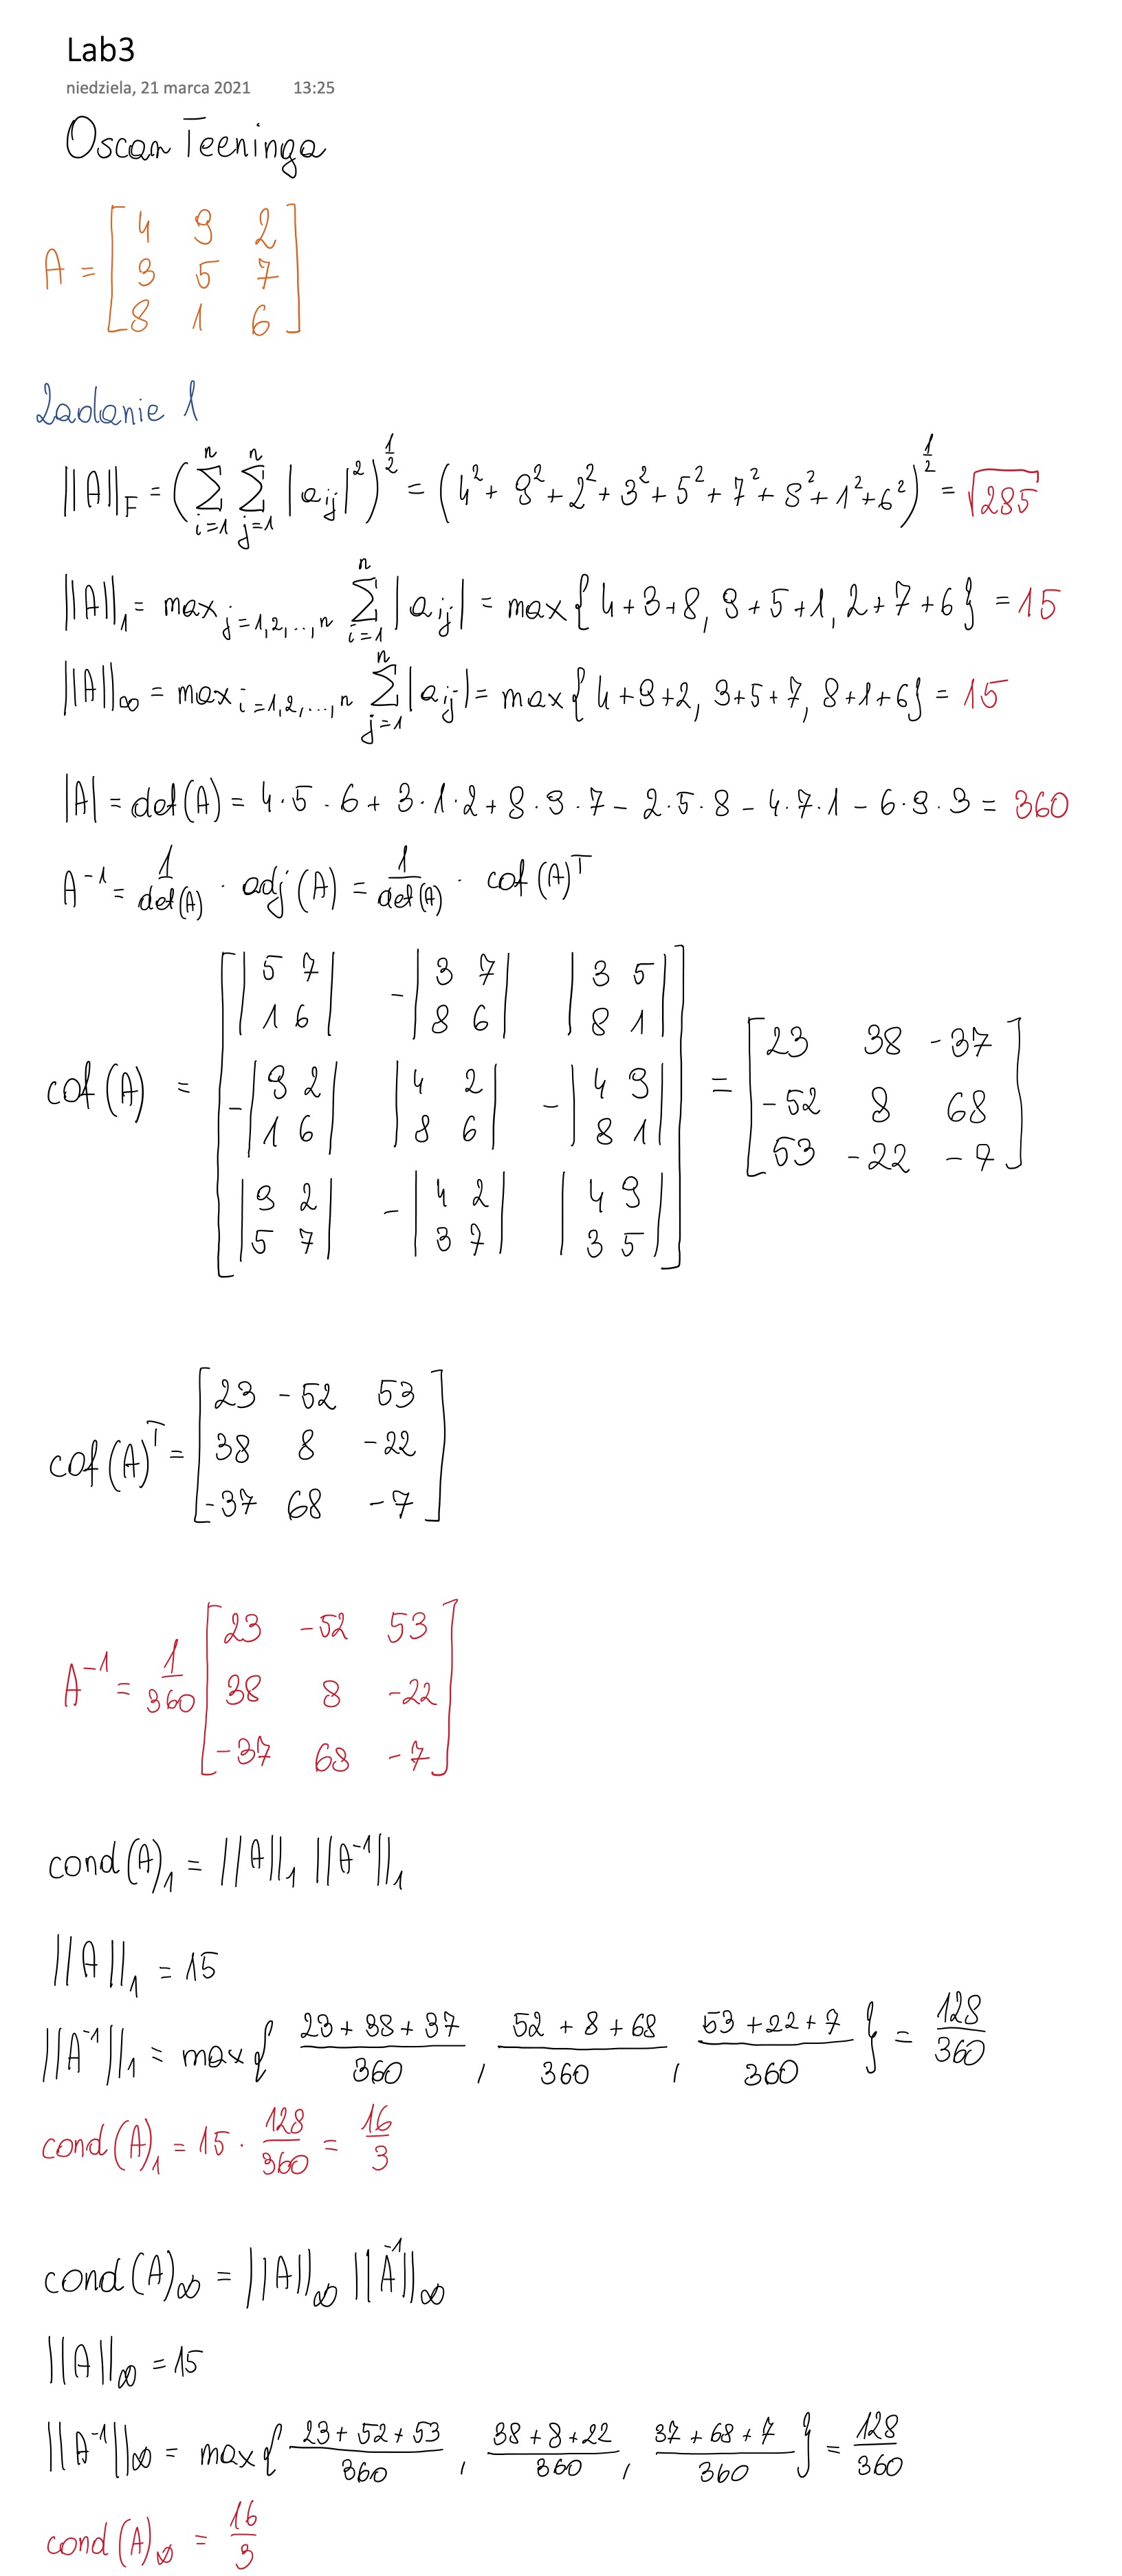 Lab3
niedziela, 21 marca 2021 13:25
Oscar Teeninga
A = [ 4 9 2
3 5 7
8 1 6 ]
Zadanie 1
||A||_F = (∑_{i=1}^{n} ∑_{j=1}^{n} |a_ij|²)^{1/2} = (4² + 9² + 2² + 3² + 5² + 7² + 8² + 1² + 6²)^{1/2} = √285
||A||₁ = max_{j=1,2,...,n} ∑_{i=1}^{n} |a_ij| = max{4+3+8, 9+5+1, 2+7+6} = 15
||A||∞ = max_{i=1,2,...,n} ∑_{j=1}^{n} |a_ij| = max{4+9+2, 3+5+7, 8+1+6} = 15
|A| = det(A) = 4·5·6 + 3·1·2 + 8·9·7 − 2·5·8 − 4·7·1 − 6·9·3 = 360
A⁻¹ = 1/det(A) · adj(A) = 1/det(A) · cof(A)ᵀ
cof(A) = [ |5 7; 1 6| −|3 7; 8 6| |3 5; 8 1|
−|9 2; 1 6| |4 2; 8 6| −|4 9; 8 1|
|9 2; 5 7| −|4 2; 3 7| |4 9; 3 5| ] = [ 23 38 −37
−52 8 68
53 −22 −7 ]
cof(A)ᵀ = [ 23 −52 53
38 8 −22
−37 68 −7 ]
A⁻¹ = 1/360 [ 23 −52 53
38 8 −22
−37 68 −7 ]
cond(A)₁ = ||A||₁ ||A⁻¹||₁
||A||₁ = 15
||A⁻¹||₁ = max{ (23+38+37)/360 , (52+8+68)/360 , (53+22+7)/360 } = 128/360
cond(A)₁ = 15 · 128/360 = 16/3
cond(A)∞ = ||A||∞ ||A⁻¹||∞
||A||∞ = 15
||A⁻¹||∞ = max{ (23+52+53)/360 , (38+8+22)/360 , (37+68+7)/360 } = 128/360
cond(A)∞ = 16/3